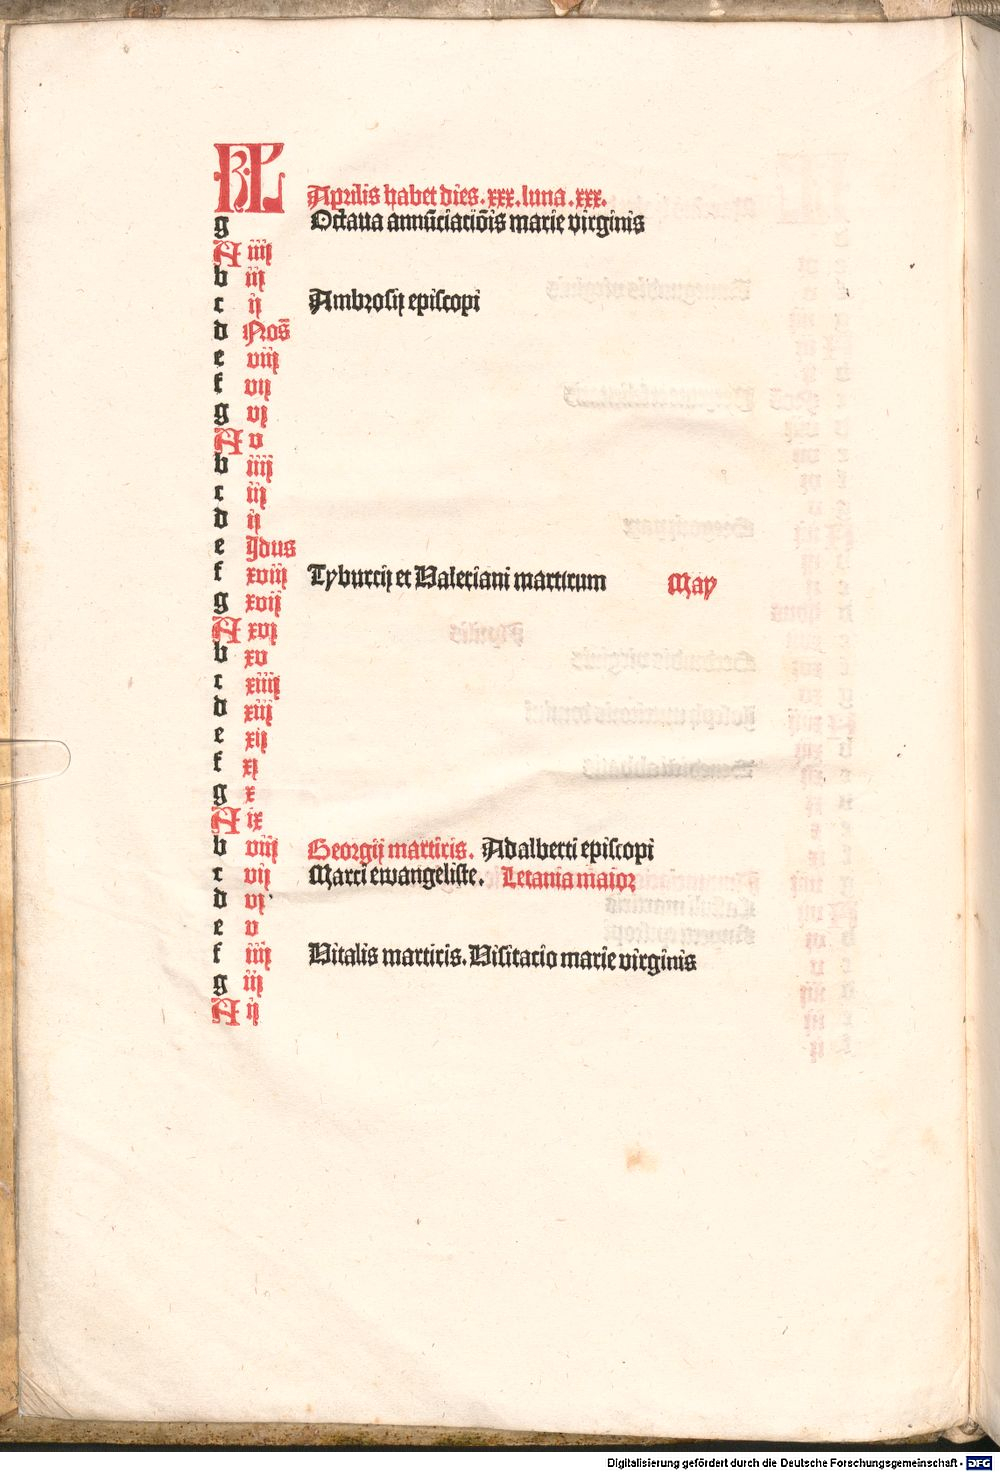 KL Aprilis habet dies . xxx . luna . xxx .
g Octaua annu̅ciacio̅is marie virginis
A iiij
b iij
c ij Ambrosij episcopi
d Nos̅
e viij
f vij
g vj
A v
b iiij
c iij
d ij
e Idus
f xviij Tyburcij et Valeriani martirum May
g xvij
A xvj
b xv
c xiiij
d xiij
e xij
f xj
g x
A ix
b viij Georgij martiris. Adalberti episcopi
c vij Marci ewangeliste. Letania maior
d vj
e v
f iiij Vitalis martiris. Visitacio marie virginis
g iij
A ij
Digitalisierung gefördert durch die Deutsche Forschungsgemeinschaft - DFG